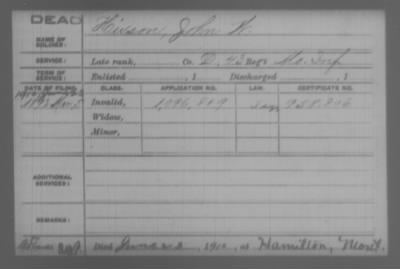 DEAD
NAME OF SOLDIER: Hixson, John W.
SERVICE: Late rank, Co. D, 43 Reg't Mo. Inf
TERM OF SERVICE: Enlisted , 1 Discharged , 1
DATE OF FILING. CLASS. APPLICATION NO. LAW. CERTIFICATE NO.
Invalid, 1,096,889 958,806
Widow,
Minor,
ADDITIONAL SERVICES:
REMARKS:
Died June 22, 191 , at Hamilton, Mont.